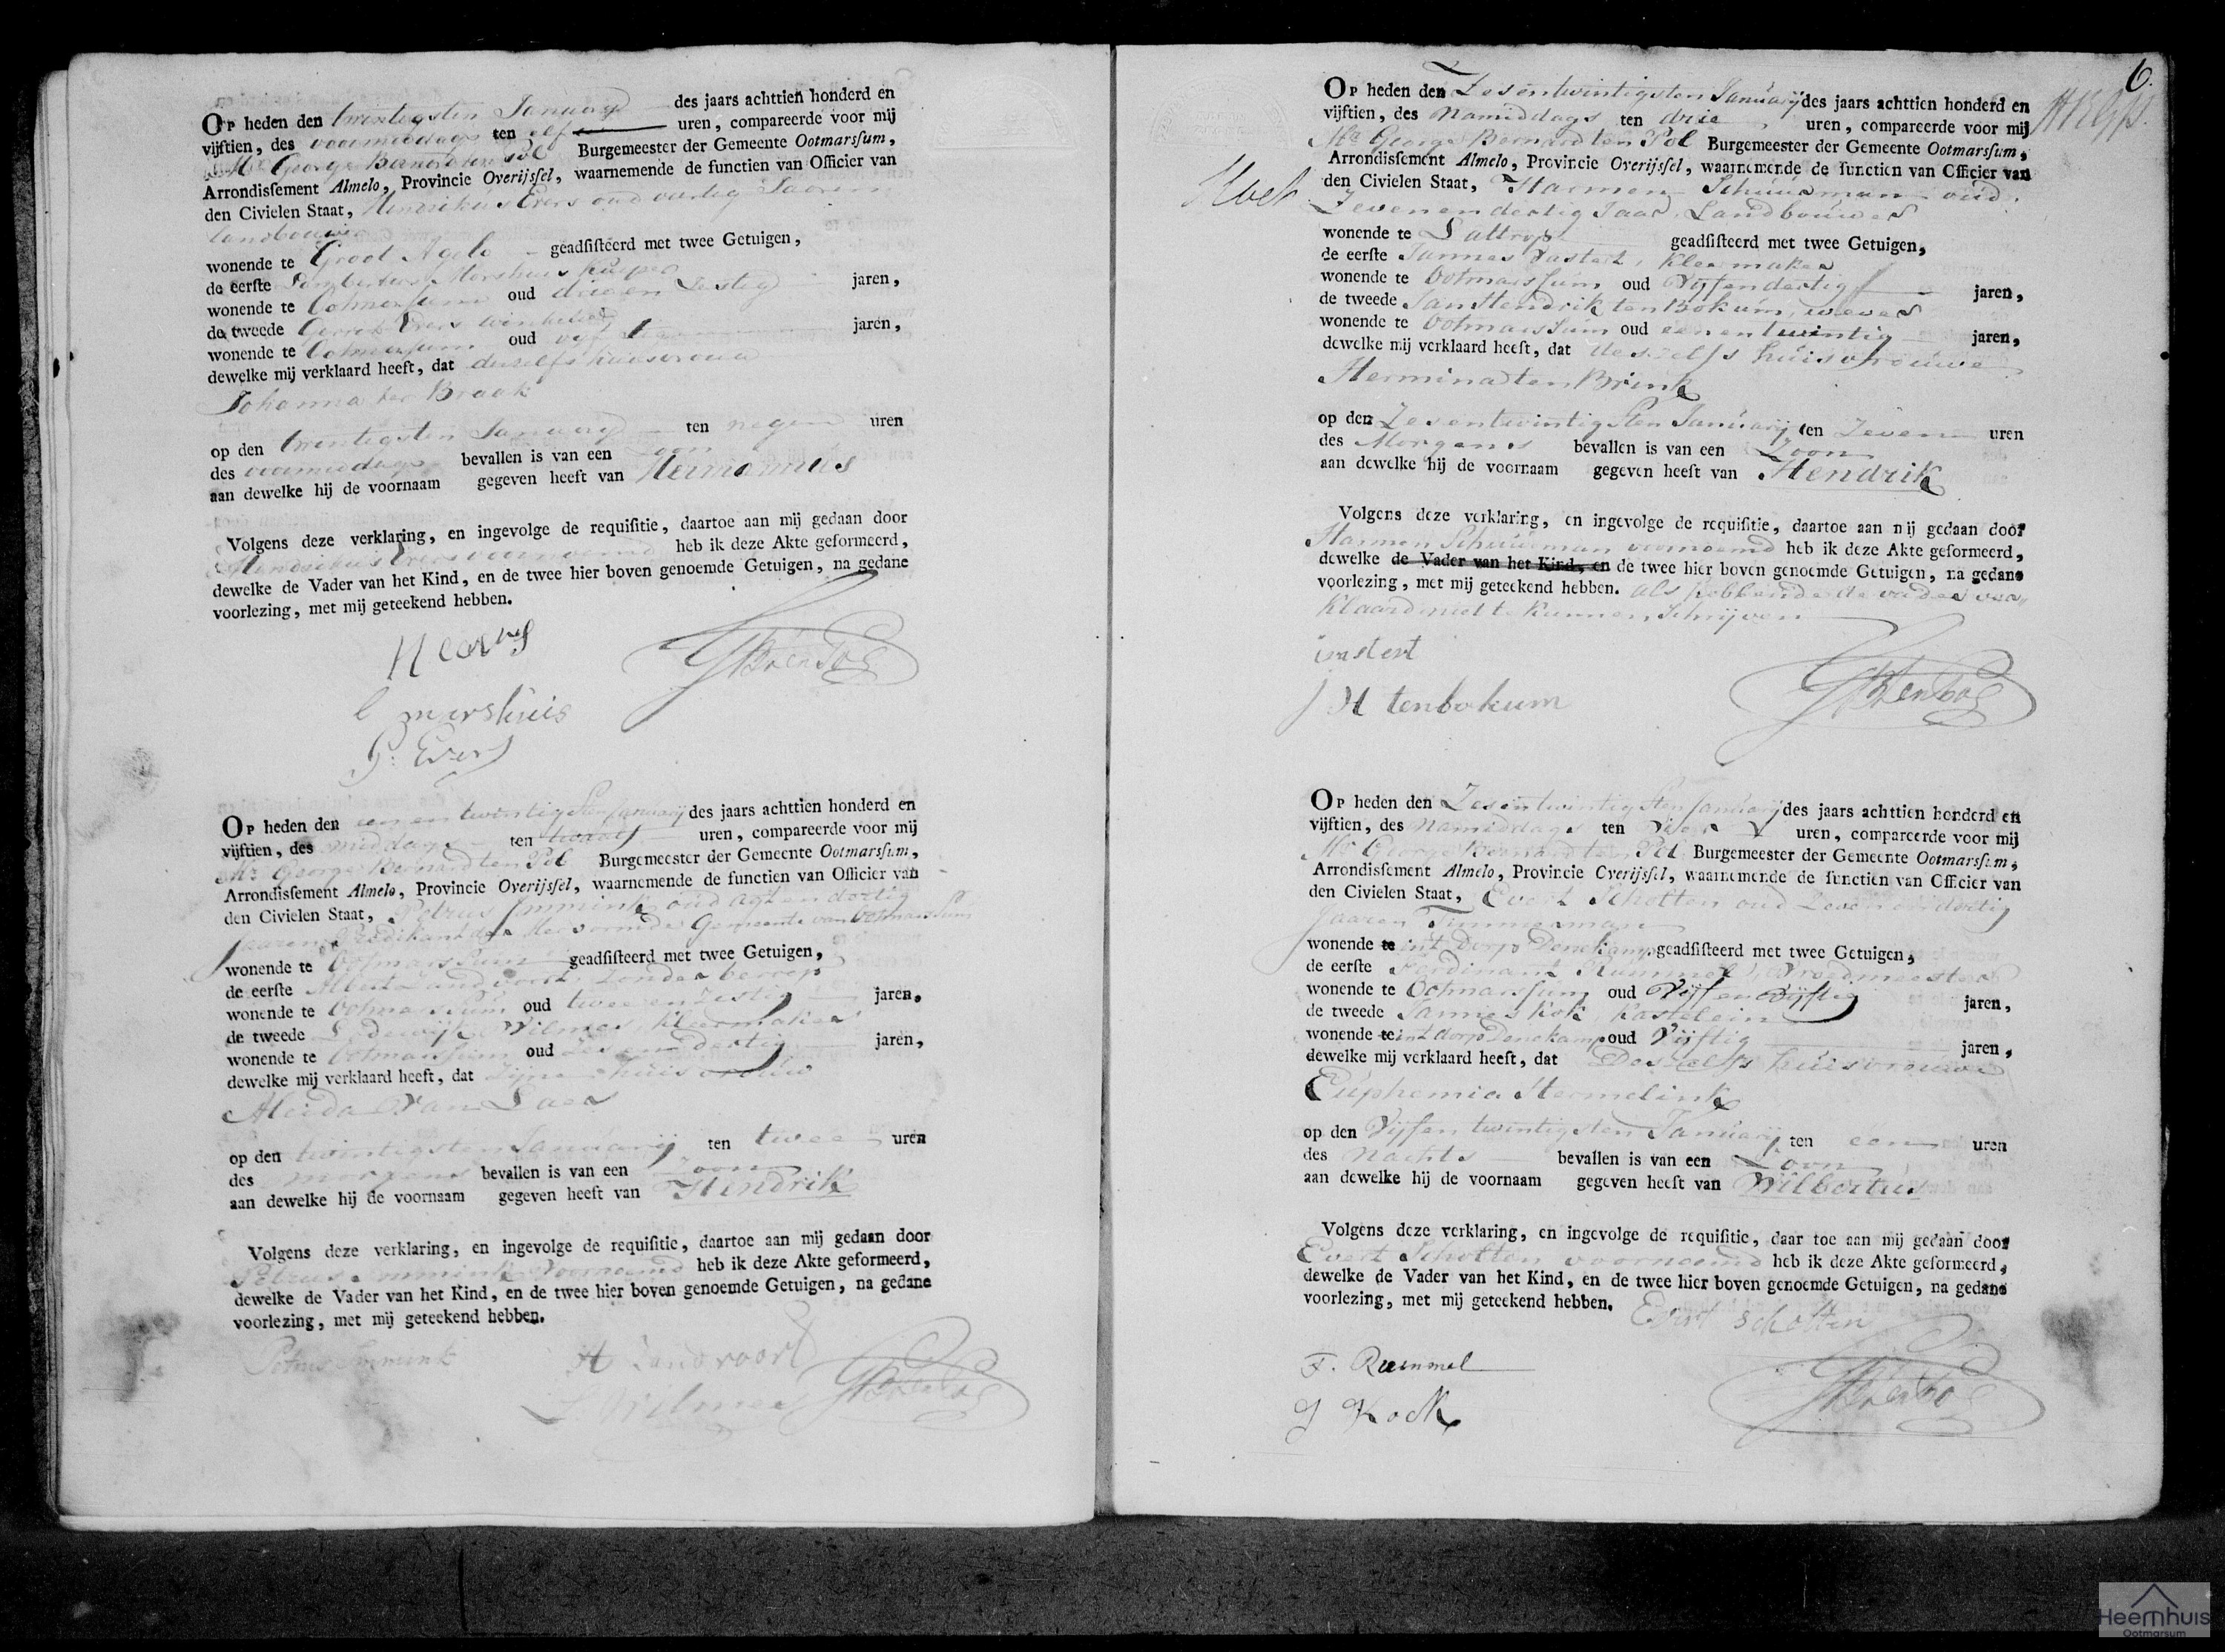 Op heden den twintigsten January des jaars achttien honderd en
vijftien, des voormiddags ten elf uren, compareerde voor mij
Mr George Bernard ten Pol Burgemeester der Gemeente Ootmarssum,
Arrondissement Almelo, Provincie Overijssel, waarnemende de functien van Officier van
den Civielen Staat, Hendrikus Evers oud veertig Jaaren
landbouwer
wonende te Groot Agelo geadsisteerd met twee Getuigen,
de eerste Lambertus Morshuis kuiper
wonende te Ootmarssum oud drie en zestig jaren,
de tweede Gerrit Evers
wonende te Ootmarssum oud jaren,
dewelke mij verklaard heeft, dat deszelfs huisvrouw
Johanna ter Braak
op den twintigsten January ten negen uren
des voormiddags bevallen is van een zoon
aan dewelke hij de voornaam gegeven heeft van Hermannus
Volgens deze verklaring, en ingevolge de requisitie, daartoe aan mij gedaan door
Hendrikus Evers voornoemd heb ik deze Akte geformeerd,
dewelke de Vader van het Kind, en de twee hier boven genoemde Getuigen, na gedane
voorlezing, met mij geteekend hebben.
GB ten Pol
l morshuis
G: Evers
Op heden den een en twintigsten Januarij des jaars achttien honderd en
vijftien, des middags ten twaalf uren, compareerde voor mij
Mr George Bernard ten Pol Burgemeester der Gemeente Ootmarssum,
Arrondissement Almelo, Provincie Overijssel, waarnemende de functien van Officier van
den Civielen Staat, Petrus Immink oud agt en dertig
Jaaren Predikant der Hervormde Gemeente van Ootmarssum
wonende te Ootmarssum geadsisteerd met twee Getuigen,
de eerste Albert Zandvoort zonder beroep
wonende te Ootmarssum oud twee en zestig jaren,
de tweede Lodewijk Wilmes, kleermaker
wonende te Ootmarssum oud zes en dertig jaren,
dewelke mij verklaard heeft, dat zijne huisvrouw
Aleida van Laer
op den twintigsten Januarij ten twee uren
des morgens bevallen is van een Zoon
aan dewelke hij de voornaam gegeven heeft van Hendrik
Volgens deze verklaring, en ingevolge de requisitie, daartoe aan mij gedaan door
Petrus Immink voornoemd heb ik deze Akte geformeerd,
dewelke de Vader van het Kind, en de twee hier boven genoemde Getuigen, na gedane
voorlezing, met mij geteekend hebben.
Petrus Immink A Zandvoort
L. Wilmes GB ten Pol
6.
Op heden den Zesentwintigsten Januarij des jaars achttien honderd en
vijftien, des Namiddags ten drie uren, compareerde voor mij
Mr George Bernard ten Pol Burgemeester der Gemeente Ootmarssum,
Arrondissement Almelo, Provincie Overijssel, waarnemende de functien van Officier van
den Civielen Staat, Harmen Schuurman oud
Zevenendertig Jaar, Landbouwer
wonende te Lattrop geadsisteerd met twee Getuigen,
de eerste Jannes Vastert, Kleermaker
wonende te Ootmarssum oud Vijfendertig jaren,
de tweede Jan Hendrik ten Bokum, wever
wonende te Ootmarssum oud eenentwintig jaren,
dewelke mij verklaard heeft, dat deszelfs huisvrouwe
Hermina ten Brink
op den Zesentwintigsten Januarij ten Zeven uren
des Morgens bevallen is van een Zoon
aan dewelke hij de voornaam gegeven heeft van Hendrik
Volgens deze verklaring, en ingevolge de requisitie, daartoe aan mij gedaan door
Harmen Schuurman voornoemd heb ik deze Akte geformeerd,
dewelke de Vader van het Kind, en de twee hier boven genoemde Getuigen, na gedane
voorlezing, met mij geteekend hebben. als hebbende de vader ver„
klaard niet te kunnen Schrijven
GB ten Pol
J H tenbokum
Op heden den Zesentwintigsten Januarij des jaars achttien honderd en
vijftien, des Namiddags ten uren, compareerde voor mij
Mr George Bernard ten Pol Burgemeester der Gemeente Ootmarssum,
Arrondissement Almelo, Provincie Overijssel, waarnemende de functien van Officier van
den Civielen Staat, Evert Scholten oud Zevenendertig
Jaaren Timmerman
wonende te int Dorp Denekamp geadsisteerd met twee Getuigen,
de eerste Ferdinant Rummel, Vroedmeester
wonende te Ootmarssum oud Vijfenvijftig jaren,
de tweede Jannes Kok, Kastelein
wonende te int dorp Denekamp oud Vijftig jaren,
dewelke mij verklaard heeft, dat Deszelfs huisvrouwe
Euphemia Hermelink
op den Vijfentwintigsten Januarij ten een uren
des Nachts bevallen is van een Zoon
aan dewelke hij de voornaam gegeven heeft van Wilbertus
Volgens deze verklaring, en ingevolge de requisitie, daar toe aan mij gedaan door
Evert Scholten voornoemd heb ik deze Akte geformeerd,
dewelke de Vader van het Kind, en de twee hier boven genoemde Getuigen, na gedane
voorlezing, met mij geteekend hebben. Evert Scholten
F. Rummel
GB ten Pol
J Kock
Heemhuis
Ootmarsum